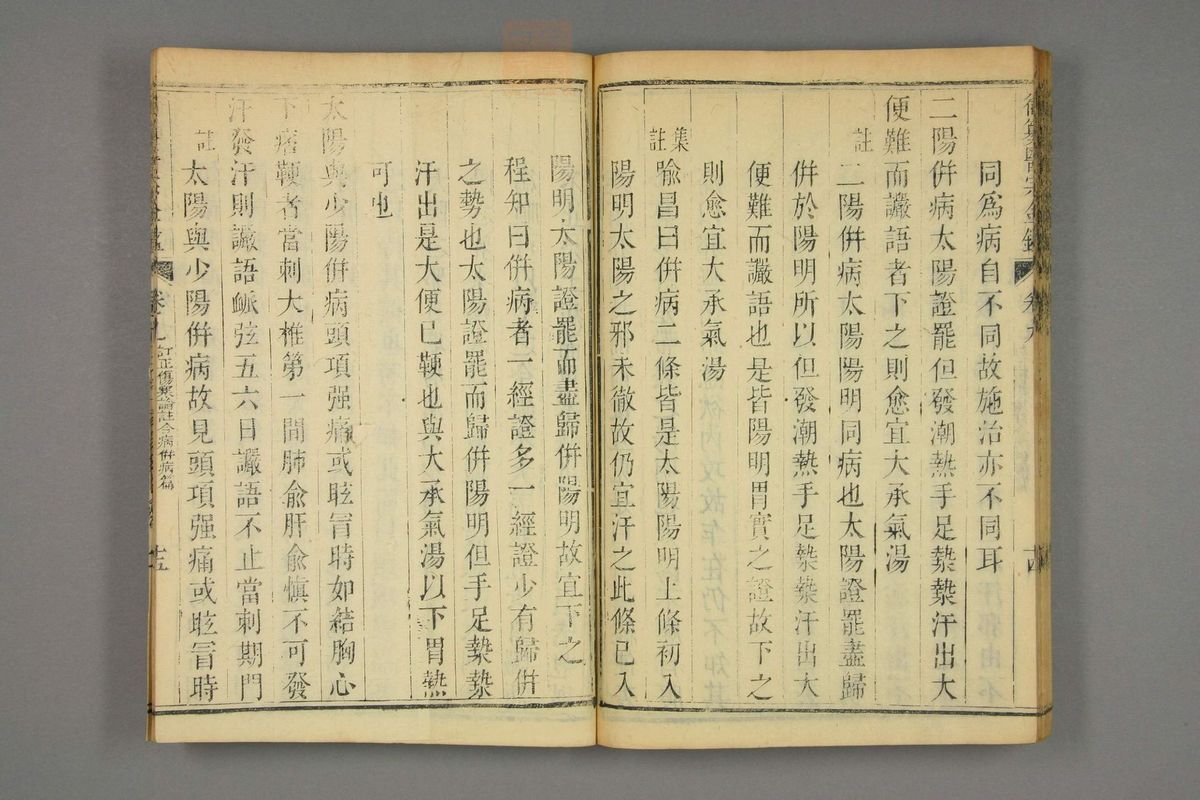 同爲病自不同故施治亦不同耳
二陽併病太陽證罷但發潮熱手足漐漐汗出大
便難而讝語者下之則愈宜大承氣湯
註
二陽併病太陽陽明同病也太陽證罷盡歸
併於陽明所以但發潮熱手足漐漐汗出大
便難而讝語也是皆陽明胃實之證故下之
則愈宜大承氣湯
集註
喻昌曰併病二條皆是太陽陽明上條初入
陽明太陽之邪未徹故仍宜汗之此條已入
陽明太陽證罷而盡歸併陽明故宜下之
程知曰併病者一經證多一經證少有歸併
之勢也太陽證罷而歸併陽明但手足漐漐
汗出是大便已鞕也與大承氣湯以下胃熱
可也
太陽與少陽併病頭項强痛或眩冒時如結胸心
下痞鞕者當刺大椎第一間肺兪肝兪愼不可發
汗發汗則讝語脈弦五六日讝語不止當刺期門
註
太陽與少陽併病故見頭項强痛或眩冒時
卷九
訂正傷寒論註合病併病篇
十五
卷九
十四